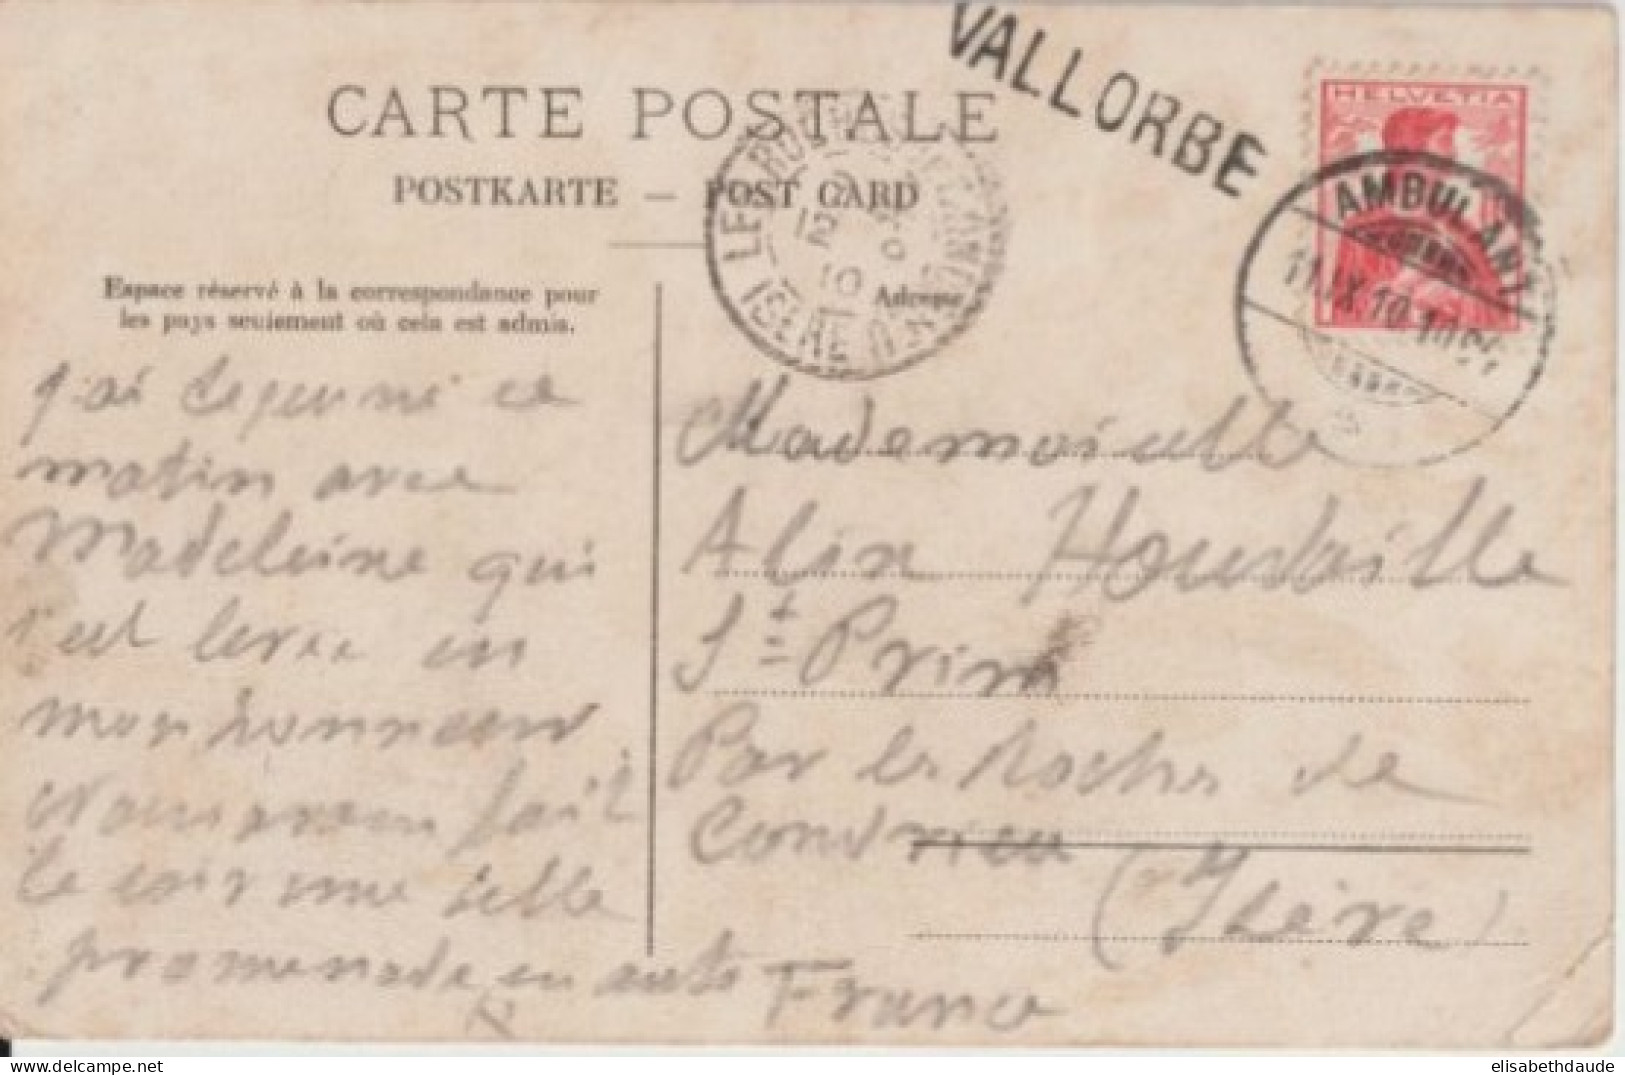 VALLORBE
HELVETIA
CARTE POSTALE
POSTKARTE — POST CARD
AMBULANT
11.IX.10.10
LE
ISÈRE
12
10
Espace réservé à la correspondance pour
les pays seulement où cela est admis.
Adresse
j'ai dejeuné ce
matin avec
Madeleine qui
s'est levée en
mon honneur
Nous avons fait
le soir une belle
promenade en auto
Mademoiselle
Alix Houdaille
St Prim
Par les Roches de
Condrieu
(Isère)
France
elisabethdaude